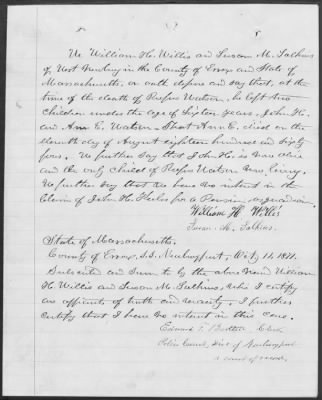 We William H. Willis and Susan M. Salkins
of West Newbury in the County of Essex and State of
Massachusetts, on oath depose and say that, at the
time of the death of Rufus Watson, he left two
Children under the age of Sixteen years, John H.
and Ann E. Watson. That Ann E. died on the
eleventh day of August eighteen hundred and sixty
four. We further Say that John H. is now alive
and the only Child of Rufus Watson now living.
We further say that we have no interest in the
Claim of John H. for a Pension
William H Willis
Susan M. Salkins.
State of Massachusetts.
County of Essex, S.S. Newburyport, 11, 1871.
Subscribed and Sworn to by the above named William
H. Willis and Susan M. Salkins, who I certify
are affiants of truth and veracity. I further
certify that I have no interest in this case.
Edward F. Clerk
Police Court, of Newburyport
a court of record.